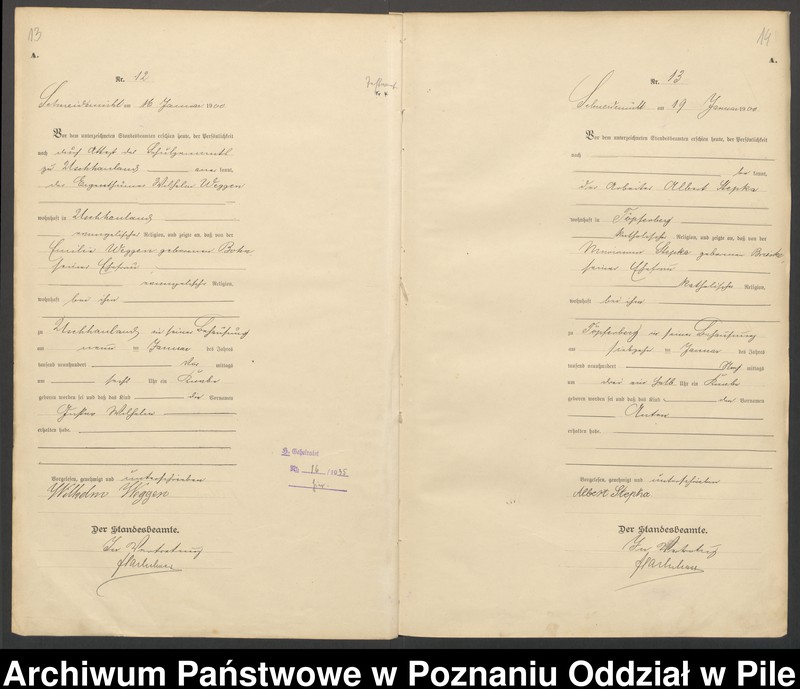 13
A.
Nr. 12
Schneidemühl am 16 Januar 1900
Vor dem unterzeichneten Standesbeamten erschien heute, der Persönlichkeit
nach durch Attest des Schulzenamts
zu Uschhauland kannt,
der Eigenthümer Wilhelm Weggen
wohnhaft in Uschhauland
evangelischer Religion, und zeigte an, daß von der
Emilie Weggen geborenen
seiner Ehefrau
evangelischer Religion,
wohnhaft bei ihm
zu Uschhauland in seiner Behausung
am neun ten Januar des Jahres
tausend neunhundert mittags
um sechs Uhr ein Knabe
geboren worden sei und daß das Kind die Vornamen
Gustav Wilhelm
erhalten habe.
Vorgelesen, genehmigt und unterschrieben
Wilhelm Weggen
Der Standesbeamte.
In Vertretung
Geheiratet
Nr. 16 / 1935
14
A.
Nr. 13
Schneidemühl am 19 Januar 1900
Vor dem unterzeichneten Standesbeamten erschien heute, der Persönlichkeit
nach
be kannt,
der Arbeiter Albert Stepka
wohnhaft in Töpferberg
katholischer Religion, und zeigte an, daß von der
Stepka geborenen
seiner Ehefrau
katholischer Religion,
wohnhaft bei ihm
zu Töpferberg in seiner Behausung
am ten Januar des Jahres
tausend neunhundert Nach mittags
um drei ein halb Uhr ein Knabe
geboren worden sei und daß das Kind den Vornamen
Anton
erhalten habe.
Vorgelesen, genehmigt und unterschrieben
Albert Stepka
Der Standesbeamte.
In Vertretung
Archiwum Państwowe w Poznaniu Oddział w Pile